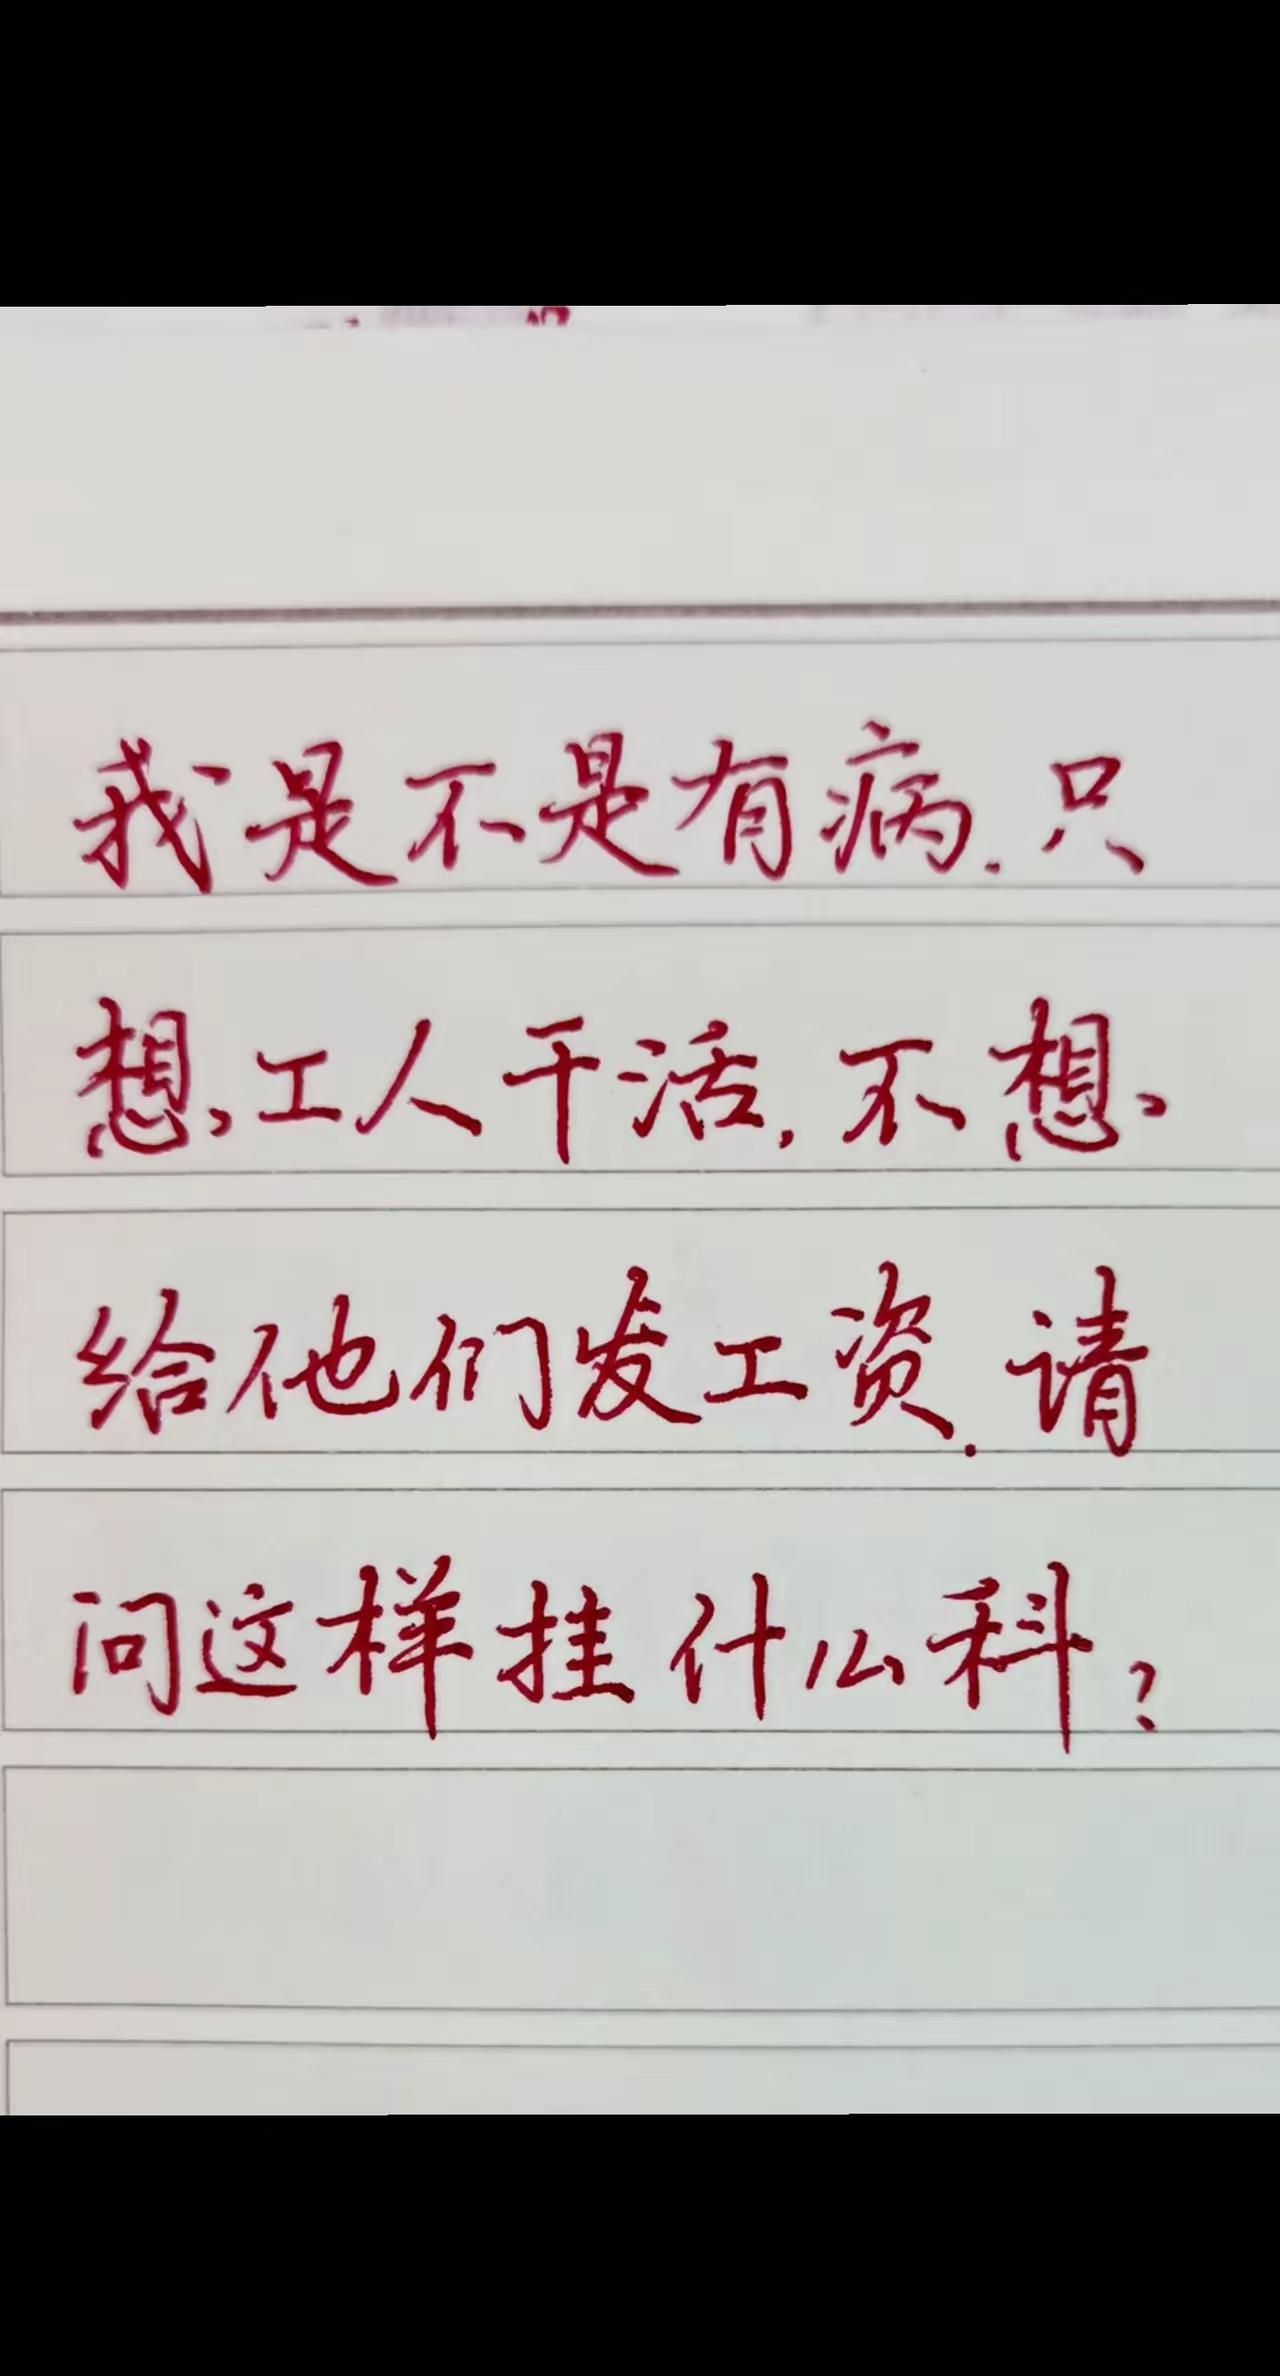 我是不是有病.只
想,工人干活,不想、
给他们发工资.请
问这样挂什么科?